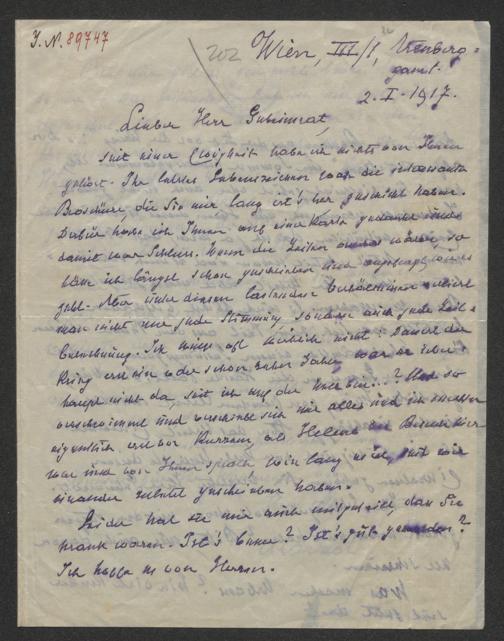 J. N. 89747
202
Wien, III/1, Ungar
gasse
2. I. 1917.
Lieber Herr Geheimrat,
Seit einer Ewigkeit habe ich nichts von Ihnen
gehört. Ihr letztes Lebenszeichen war die interessante
Broschüre, die Sie mir lang ist's her geschickt haben.
Dafür habe ich Ihnen auf einer Karte gedankt und
damit war Schluss. Wenn die Zeiten anders wären, so
hätte ich längst schon geschrieben und angefragt wie es
geht. Aber unter diesen lastenden Verhältnissen verliert
man nicht nur jede Stimmung sondern auch jede Zeit-
berechnung. Ich weiss oft wirklich nicht: Dauert der
Krieg erst ein oder schon zehn Jahre, war er über-
haupt nicht da, seit ich auf der Welt bin...? Und so
verschwimmt und verschiebt sich mir alles und ich
eigentlich erst vor Kurzem, als Helene bei Besuch hier
war und von Ihnen sprach, wie lang es ist, seit wir
einander zuletzt geschrieben haben.
Leider hat sie mir auch mitgeteilt, dass Sie
krank waren. Ist's besser? Ist's gut geworden?
Ich hoffe es von Herzen.